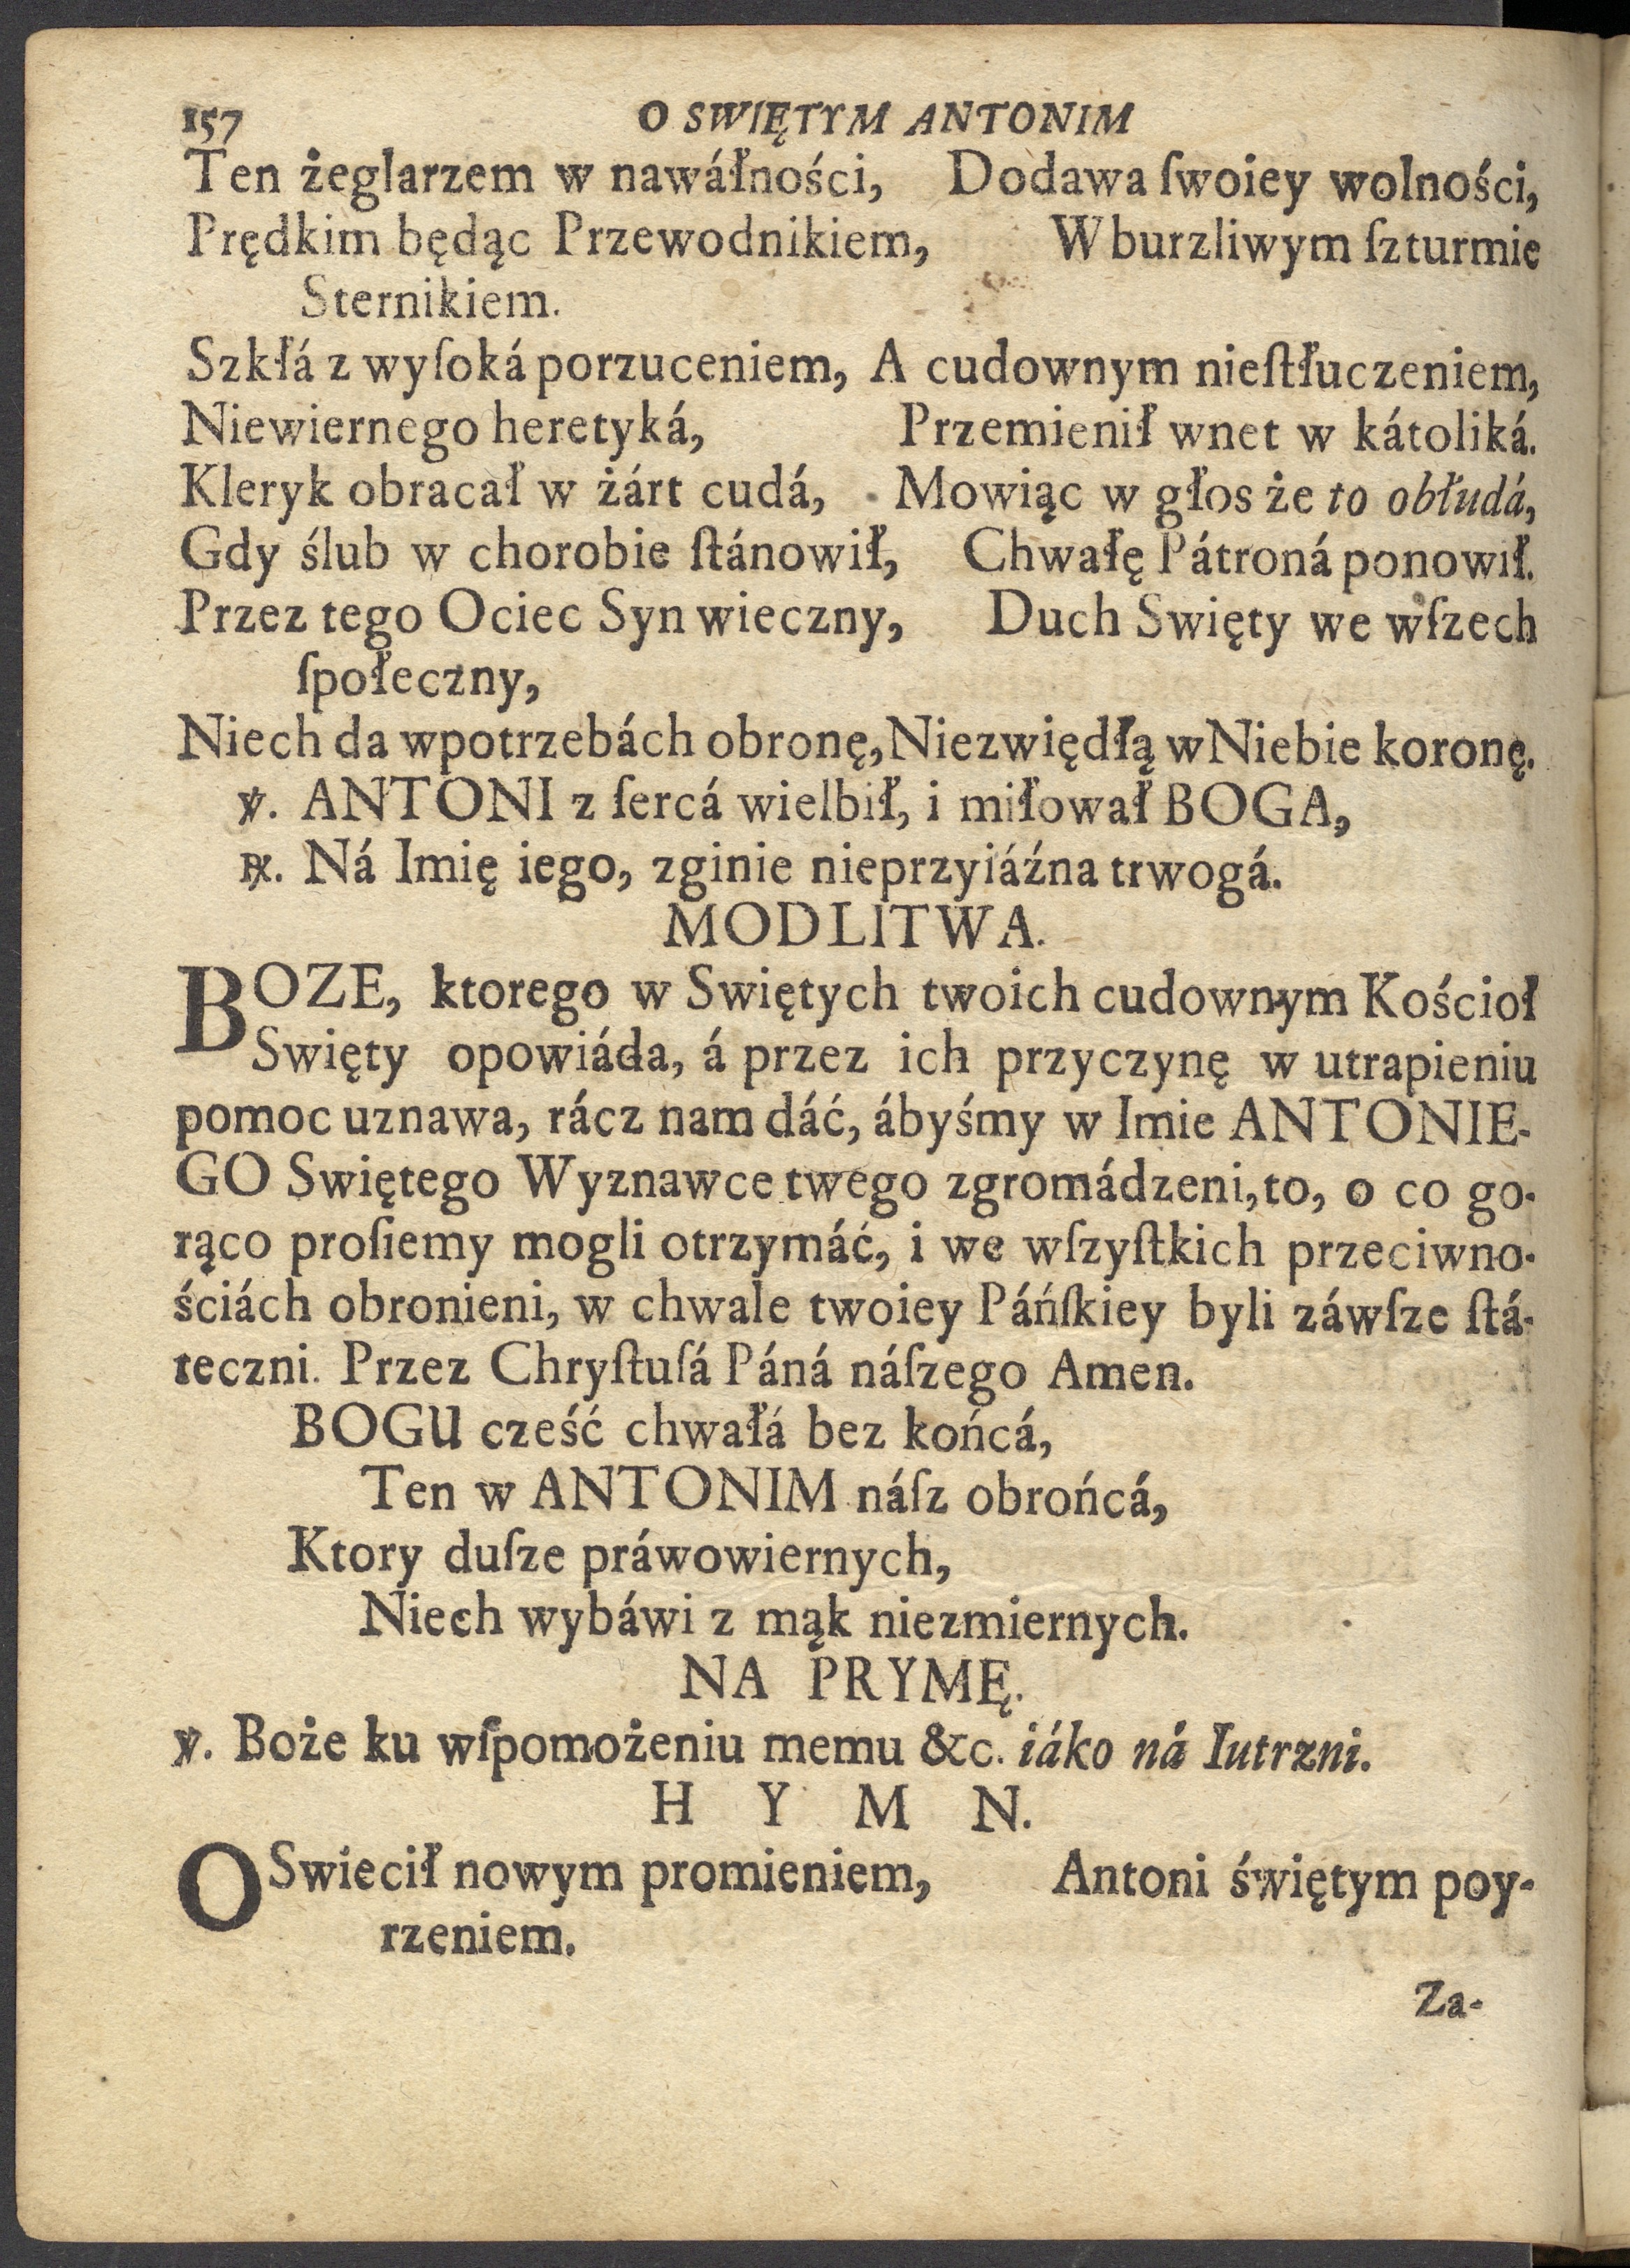 157 O SWIĘTYM ANTONIM
Ten żeglarzem w nawáłności, Dodawa ſwoiey wolności,
Prędkim będąc Przewodnikiem, W burzliwym ſzturmie
Sternikiem.
Szkłá z wyſoká porzuceniem, A cudownym nieſtłuczeniem,
Niewiernego heretyká, Przemienił wnet w kátoliká.
Kleryk obracał w żárt cudá, Mowiąc w głos że to obłudá,
Gdy ślub w chorobie ſtánowił, Chwałę Pátroná ponowił.
Przez tego Ociec Syn wieczny, Duch Swięty we wſzech
ſpołeczny,
Niech da wpotrzebách obronę, Niezwiędłą w Niebie koronę.
℣. ANTONI z ſercá wielbił, i miłował BOGA,
℟. Ná Imię iego, zginie nieprzyiáźna trwogá.
MODLITWA.
BOZE, ktorego w Swiętych twoich cudownym Kościoł
Swięty opowiáda, á przez ich przyczynę w utrapieniu
pomoc uznawa, rácz nam dáć, ábyśmy w Imie ANTONIE-
GO Swiętego Wyznawce twego zgromádzeni, to, o co go-
rąco proſiemy mogli otrzymáć, i we wſzyſtkich przeciwno-
ściách obronieni, w chwale twoiey Páńſkiey byli záwſze ſtá-
teczni. Przez Chryſtuſá Páná náſzego Amen.
BOGU cześć chwałá bez końcá,
Ten w ANTONIM náſz obrońcá,
Ktory duſze práwowiernych,
Niech wybáwi z mąk niezmiernych.
NA PRYMĘ.
℣. Boże ku wſpomożeniu memu &c. iáko ná Iutrzni.
H Y M N.
OSwiecił nowym promieniem, Antoni świętym poy-
rzeniem.
Za-